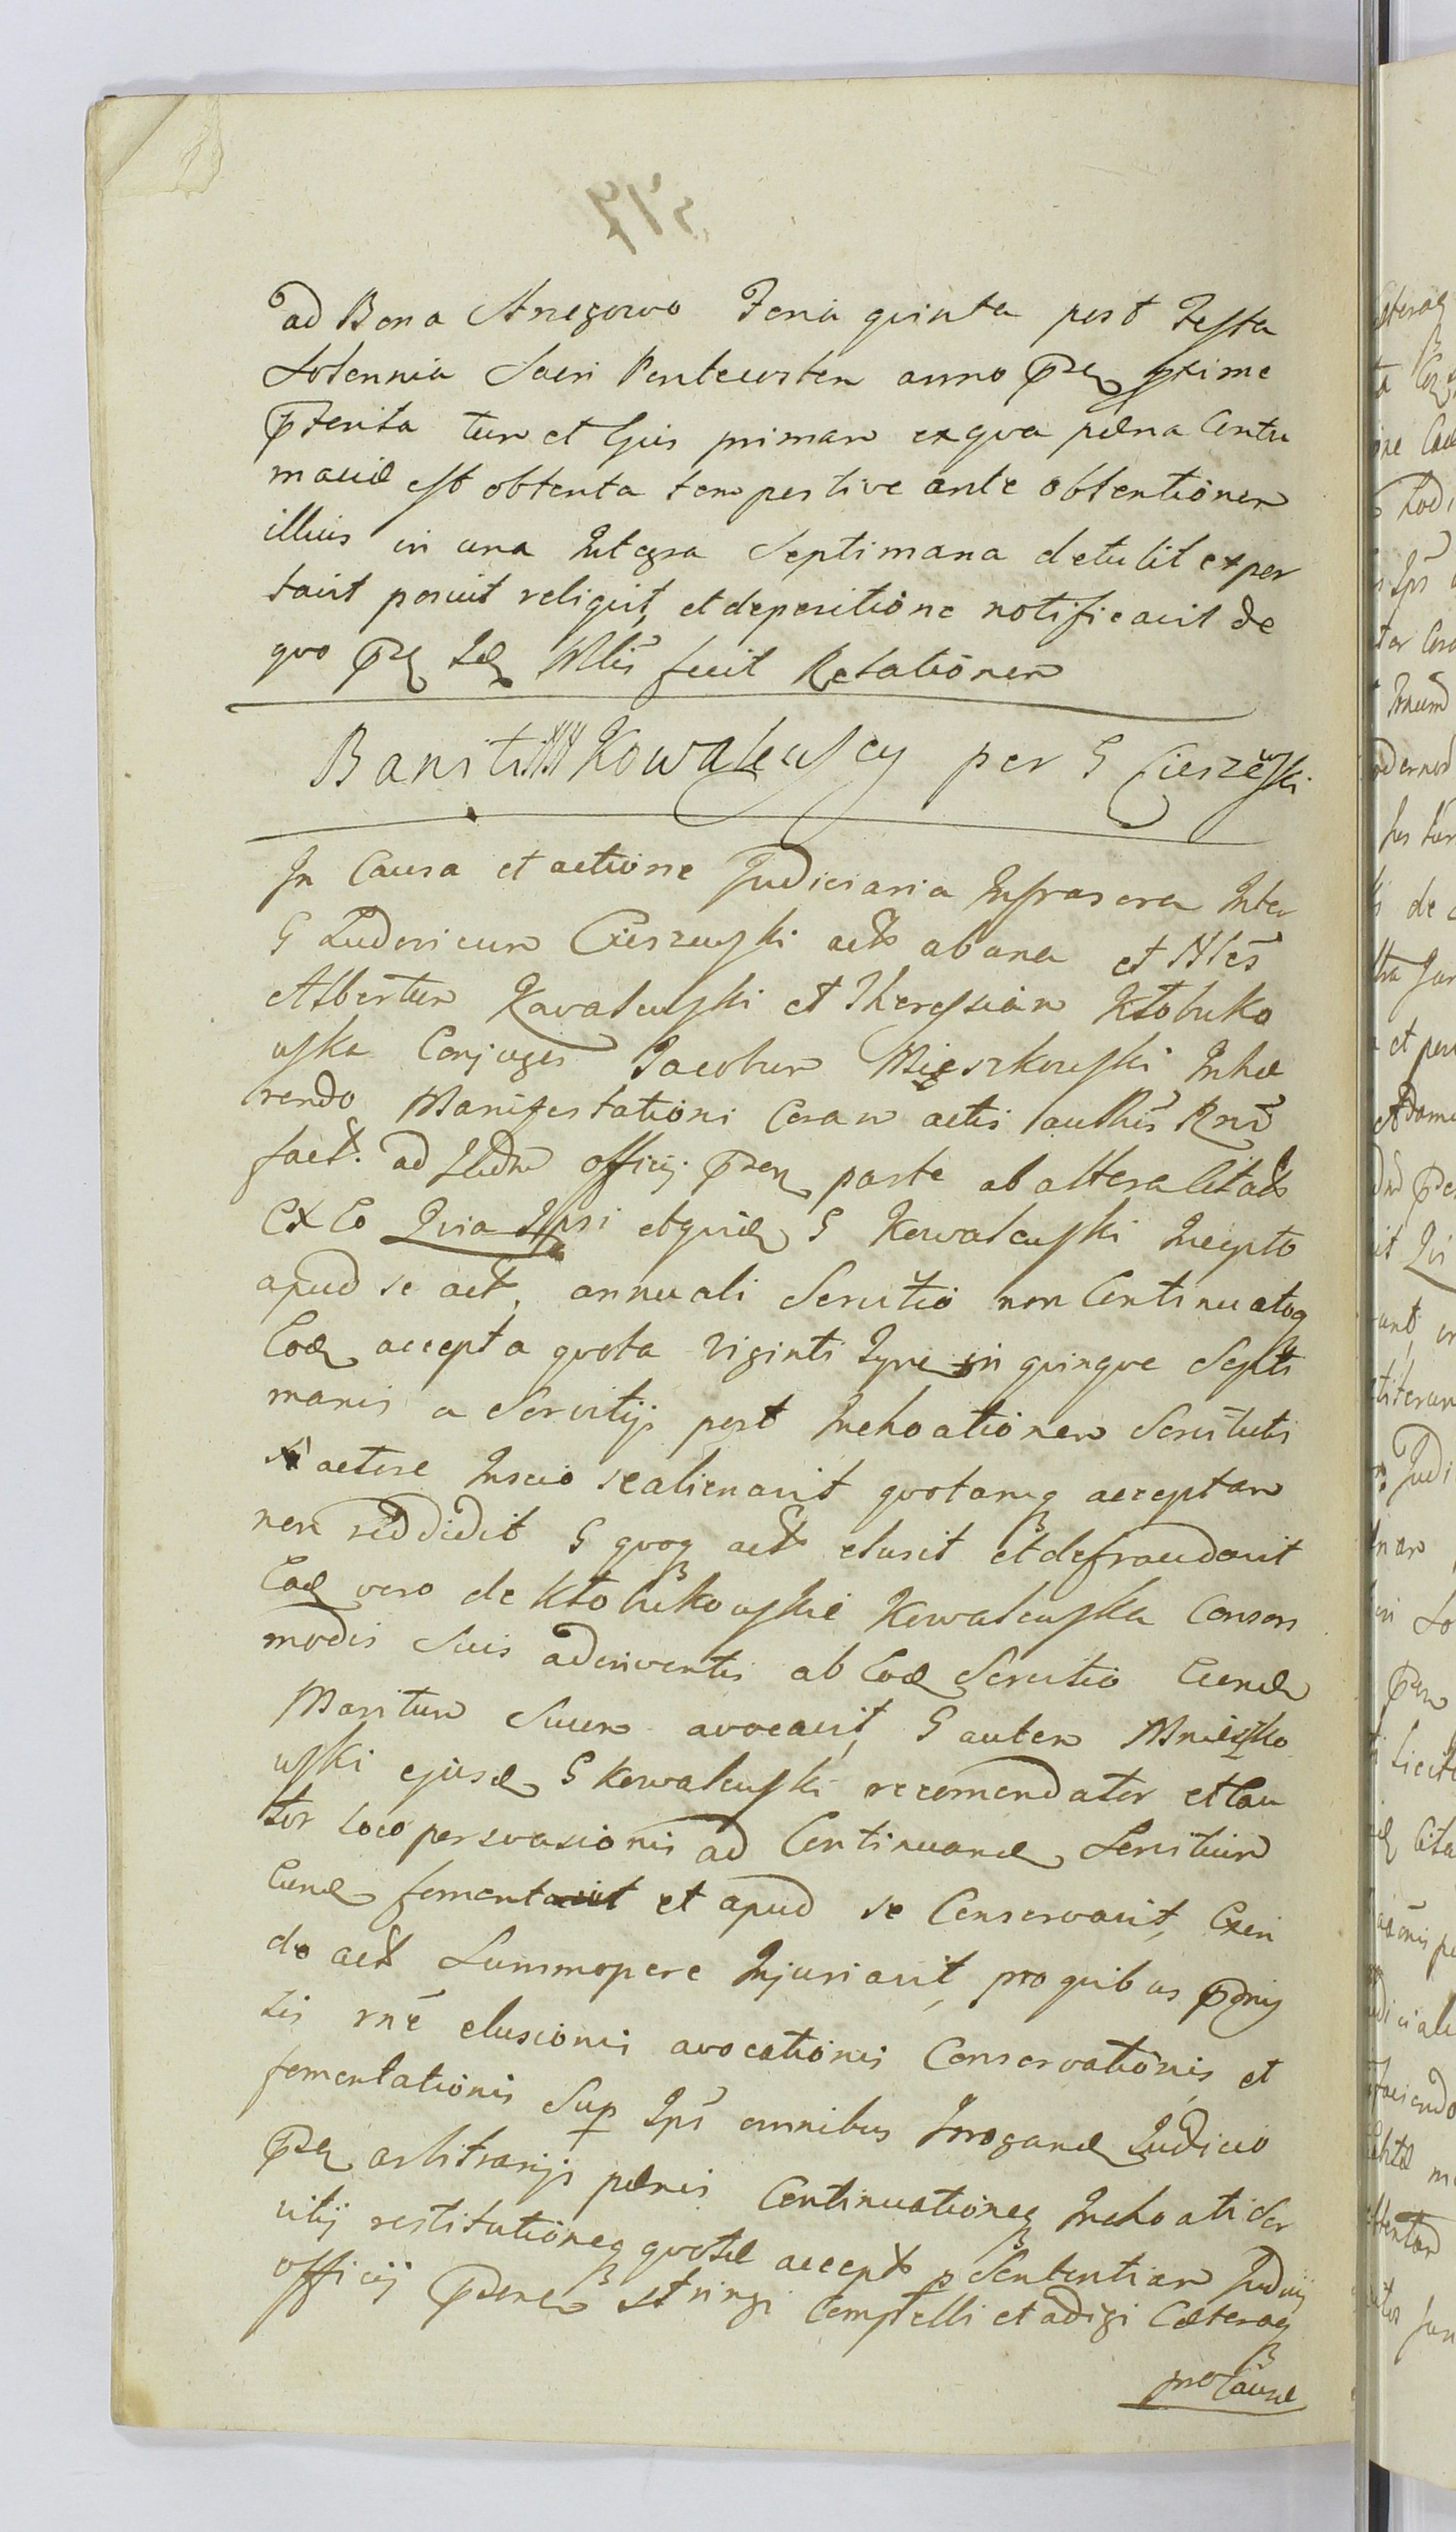 ad Bona Strzegowo Feria quinta post Festa
Solennia Sacri Pentecosten anno prx
prterita tum et Ejus primam ex qva pæna Contu
maciæ est obtenta tempestive ante obtentionem
illius in una Integra Septimana detulit exper
tavit posuit reliqvit, et depositione notificavit de
qvo fecit Relationem
Baniti Kowalewscy per G Cieszewski
In Causa et actione Judiciaria Infrascra Inter
G Ludovicum Cieszewski act ab una et Nlēs
Albertum Kowalewski et Theressiam Kłobuko
wska Conjuges Jacobum Mieszkowski Inhæ
rendo Manifestationi Coram actis
fact. ad officij parte ab altera Citat
Ex Eo Qvia Ipsi G Kowalewski Inceptо
apud se act, annuali Servitio non Continuatoq
Eod accepta qvota viginti in qvinqve Septi
manis a Servitij post Inchoationem Servituti
actore Inscio se alienavit qvotamq acceptam
non reddidit G qvoq act elusit et defraudavit
Ead vero de Kłobukowskie Kowalewska Consors
modis Suis adinventis ab Eod Servitio Eund
Maritum Suum avocavit, G autem Mniszko
wski ejusd G Kowalewski recomendator et Cau
tor loco persvasionis ad Continuand Servitium
Eund foment et apud se Conservavit, Exin
de act Summopere Injuriavit, pro qvibus pdmis
sis rne elusionis avocationis Conservationis, et
fomentationis Sup Ips omnibus Irrogand Judicio
arbitrarijs pænis Continuationeq Inchoati Ser
vitij restitutioneq qvotæ accept p Sententiam Judicij
officij stringi Compelli et adigi Cæteraq
pro Causæ